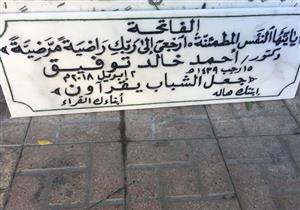 الفاتحة
يا أيتها النفس المطمئنة ارجعي إلى ربك راضية مرضية
دكتور/ أحمد خالد توفيق
١٥ رجب ١٤٣٩ هـ ٢ إبريل ٢٠١٨ م
«جعل الشباب يقرأون»
أبناءك القراء